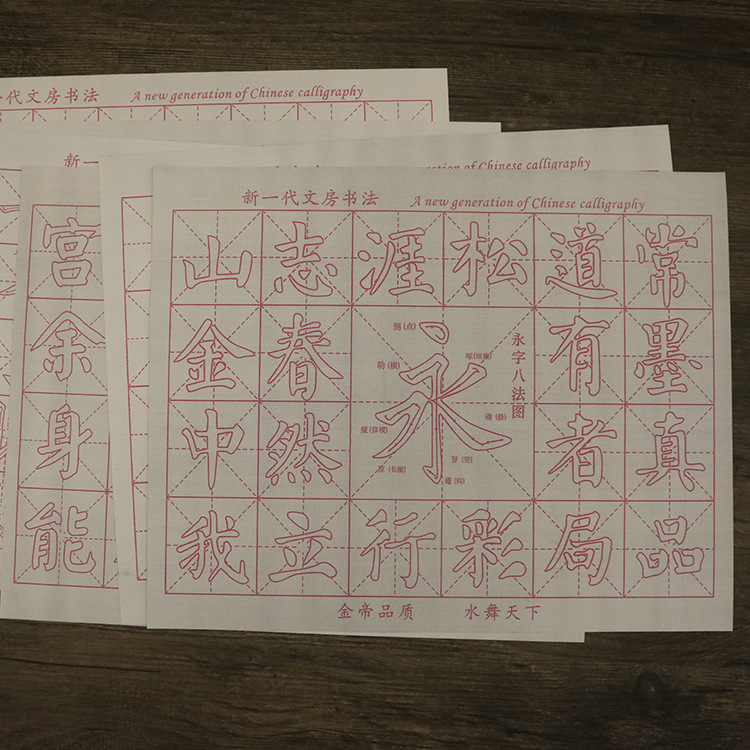 一代文房书法 A new generation of Chinese calligraphy
新一
generation of Chinese calligraphy
新一代文房书法 A new generation of Chinese calligraphy
宫
余
身
能
山志涯松道常
金春有墨
中然者真
我立行彩局品
永
永字八法图
侧(点)
勒(横)
啄(短撇)
磔(捺)
努(竖)
趯(钩)
金帝品质 水舞天下